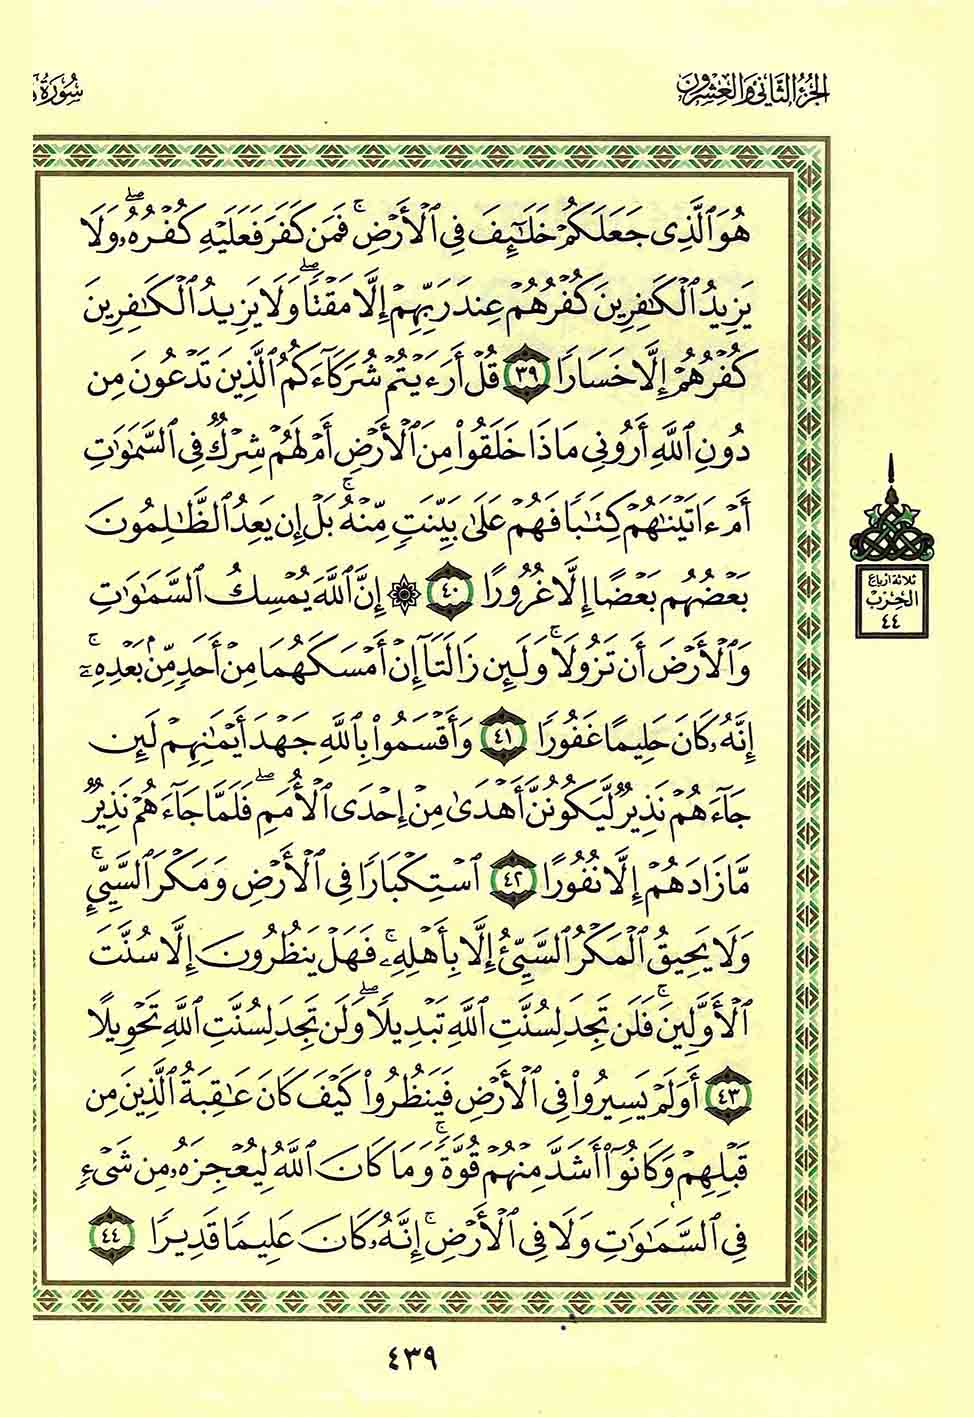 الجزء الثاني والعشرون
سورة
هُوَ ٱلَّذِى جَعَلَكُمْ خَلَـٰٓئِفَ فِى ٱلْأَرْضِ ۚ فَمَن كَفَرَ فَعَلَيْهِ كُفْرُهُۥ ۖ وَلَا
يَزِيدُ ٱلْكَـٰفِرِينَ كُفْرُهُمْ عِندَ رَبِّهِمْ إِلَّا مَقْتًا ۖ وَلَا يَزِيدُ ٱلْكَـٰفِرِينَ
كُفْرُهُمْ إِلَّا خَسَارًا ٣٩ قُلْ أَرَءَيْتُمْ شُرَكَآءَكُمُ ٱلَّذِينَ تَدْعُونَ مِن
دُونِ ٱللَّهِ أَرُونِى مَاذَا خَلَقُوا۟ مِنَ ٱلْأَرْضِ أَمْ لَهُمْ شِرْكٌ فِى ٱلسَّمَـٰوَٰتِ
أَمْ ءَاتَيْنَـٰهُمْ كِتَـٰبًا فَهُمْ عَلَىٰ بَيِّنَتٍ مِّنْهُ ۚ بَلْ إِن يَعِدُ ٱلظَّـٰلِمُونَ
بَعْضُهُم بَعْضًا إِلَّا غُرُورًا ٤٠ ۞ إِنَّ ٱللَّهَ يُمْسِكُ ٱلسَّمَـٰوَٰتِ
وَٱلْأَرْضَ أَن تَزُولَا ۚ وَلَئِن زَالَتَآ إِنْ أَمْسَكَهُمَا مِنْ أَحَدٍ مِّنۢ بَعْدِهِۦٓ ۚ
إِنَّهُۥ كَانَ حَلِيمًا غَفُورًا ٤١ وَأَقْسَمُوا۟ بِٱللَّهِ جَهْدَ أَيْمَـٰنِهِمْ لَئِن
جَآءَهُمْ نَذِيرٌ لَّيَكُونُنَّ أَهْدَىٰ مِنْ إِحْدَى ٱلْأُمَمِ ۖ فَلَمَّا جَآءَهُمْ نَذِيرٌ
مَّا زَادَهُمْ إِلَّا نُفُورًا ٤٢ ٱسْتِكْبَارًا فِى ٱلْأَرْضِ وَمَكْرَ ٱلسَّيِّئِ ۚ
وَلَا يَحِيقُ ٱلْمَكْرُ ٱلسَّيِّئُ إِلَّا بِأَهْلِهِۦ ۚ فَهَلْ يَنظُرُونَ إِلَّا سُنَّتَ
ٱلْأَوَّلِينَ ۚ فَلَن تَجِدَ لِسُنَّتِ ٱللَّهِ تَبْدِيلًا ۖ وَلَن تَجِدَ لِسُنَّتِ ٱللَّهِ تَحْوِيلًا
٤٣ أَوَلَمْ يَسِيرُوا۟ فِى ٱلْأَرْضِ فَيَنظُرُوا۟ كَيْفَ كَانَ عَـٰقِبَةُ ٱلَّذِينَ مِن
قَبْلِهِمْ وَكَانُوٓا۟ أَشَدَّ مِنْهُمْ قُوَّةً ۚ وَمَا كَانَ ٱللَّهُ لِيُعْجِزَهُۥ مِن شَىْءٍ
فِى ٱلسَّمَـٰوَٰتِ وَلَا فِى ٱلْأَرْضِ ۚ إِنَّهُۥ كَانَ عَلِيمًا قَدِيرًا ٤٤
ثلاثة أرباع
الحزب
٤٤
٤٣٩